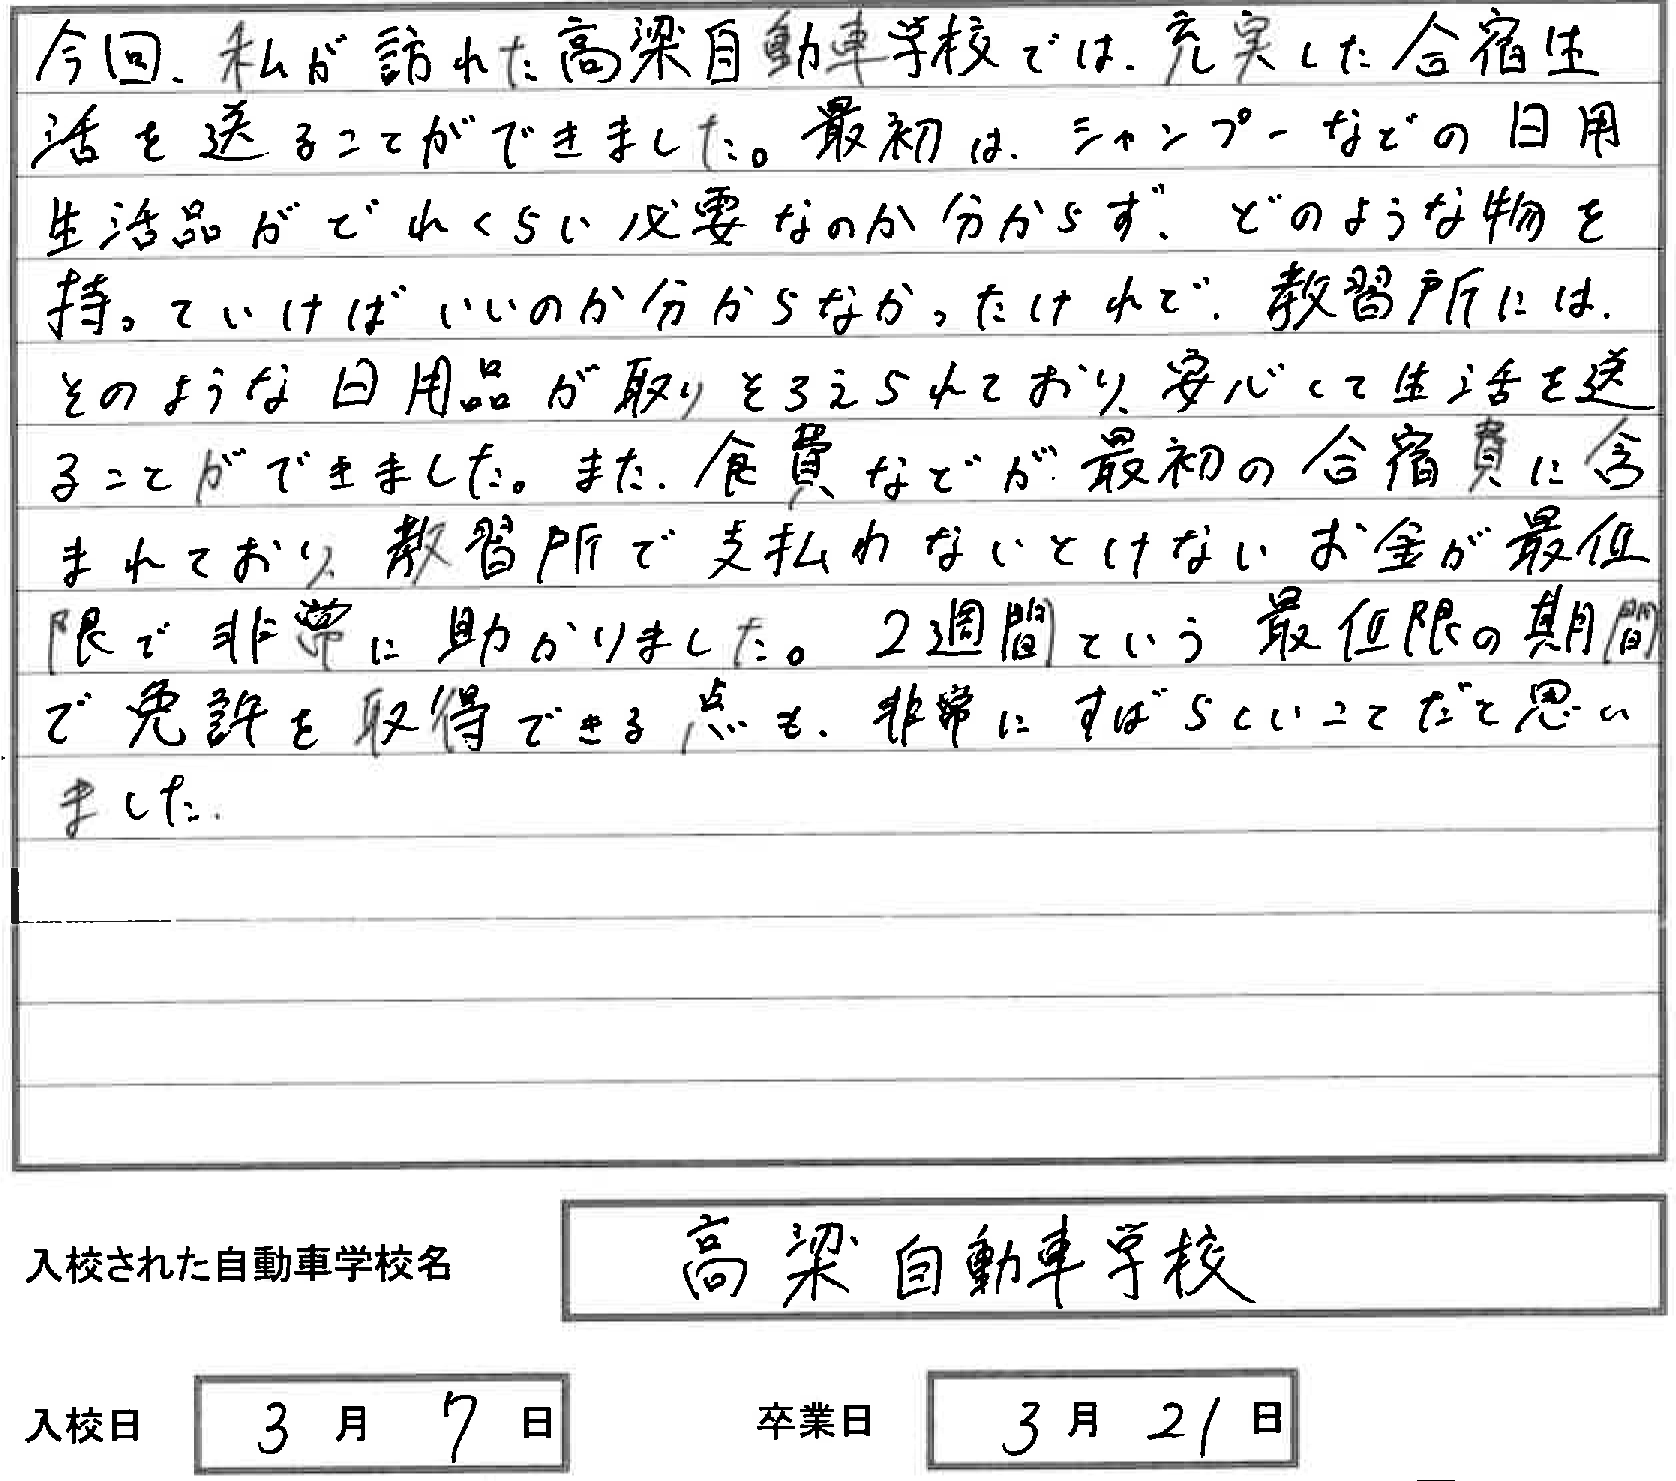 今回、私が訪れた高梁自動車学校では、充実した合宿生
活を送ることができました。最初は、シャンプーなどの日用
生活品がどれくらい必要なのか分からず、どのような物を
持っていけばいいのか分からなかったけれど、教習所には、
そのような日用品が取りそろえられており、安心して生活を送
ることができました。また、食費などが最初の合宿費に含
まれており、教習所で支払わないといけないお金が最低
限で非常に助かりました。2週間という最低限の期間
で免許を取得できる点も、非常にすばらしいことだと思い
ました。
入校された自動車学校名 高梁自動車学校
入校日 3月7日 卒業日 3月21日